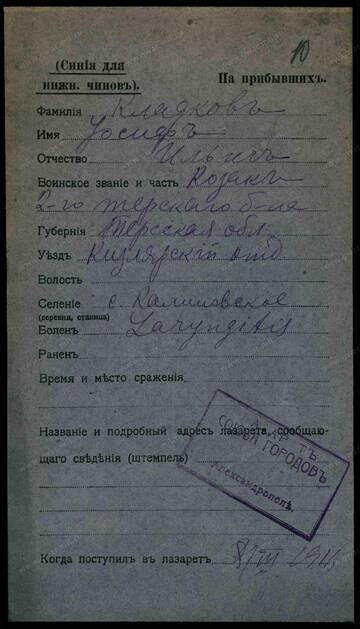 10
(Синія для
нижн. чиновъ).
На прибывшихъ.
Фамилія Кладковъ
Имя Іосифъ
Отчество Ильичъ
Воинское званіе и часть Козакъ
2-го терскаго б-на
Губернія Терская обл.
Уѣздъ Кизлярскій отд.
Волость
Селеніе с. Калиновское
(деревня, станица)
Боленъ Laryngitis
Раненъ
Время и мѣсто сраженія
Названіе и подробный адресъ лазарета, сообщаю-
щаго свѣдѣнія (штемпель)
СОЮЗА ГОРОДОВЪ
Александрополь.
Когда поступилъ въ лазаретъ